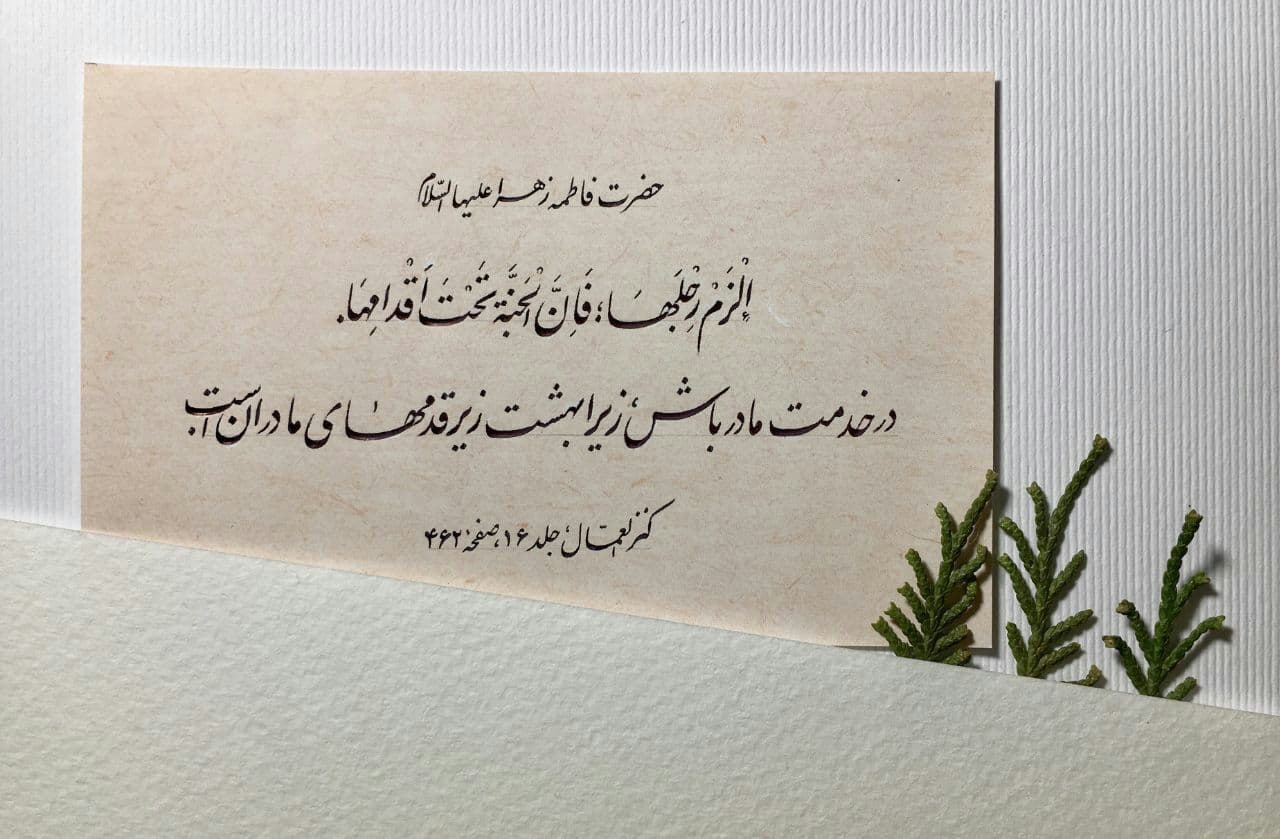 حضرت فاطمه زهرا علیها السّلام
اِلْزَمْ رِجْلَهَا؛ فَاِنَّ الْجَنَّةَ تَحْتَ اَقْدامِهَا.
در خدمت مادر باش؛ زیرا بهشت زیر قدمهای مادران است.
کنز العمّال؛ جلد ۱۶، صفحهٔ ۴۶۲